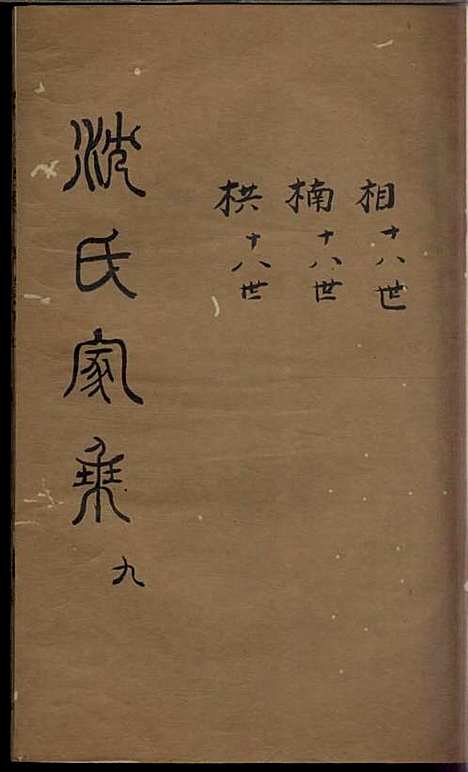 相十八世
楠十八世
栱十八世
沈氏家乘九